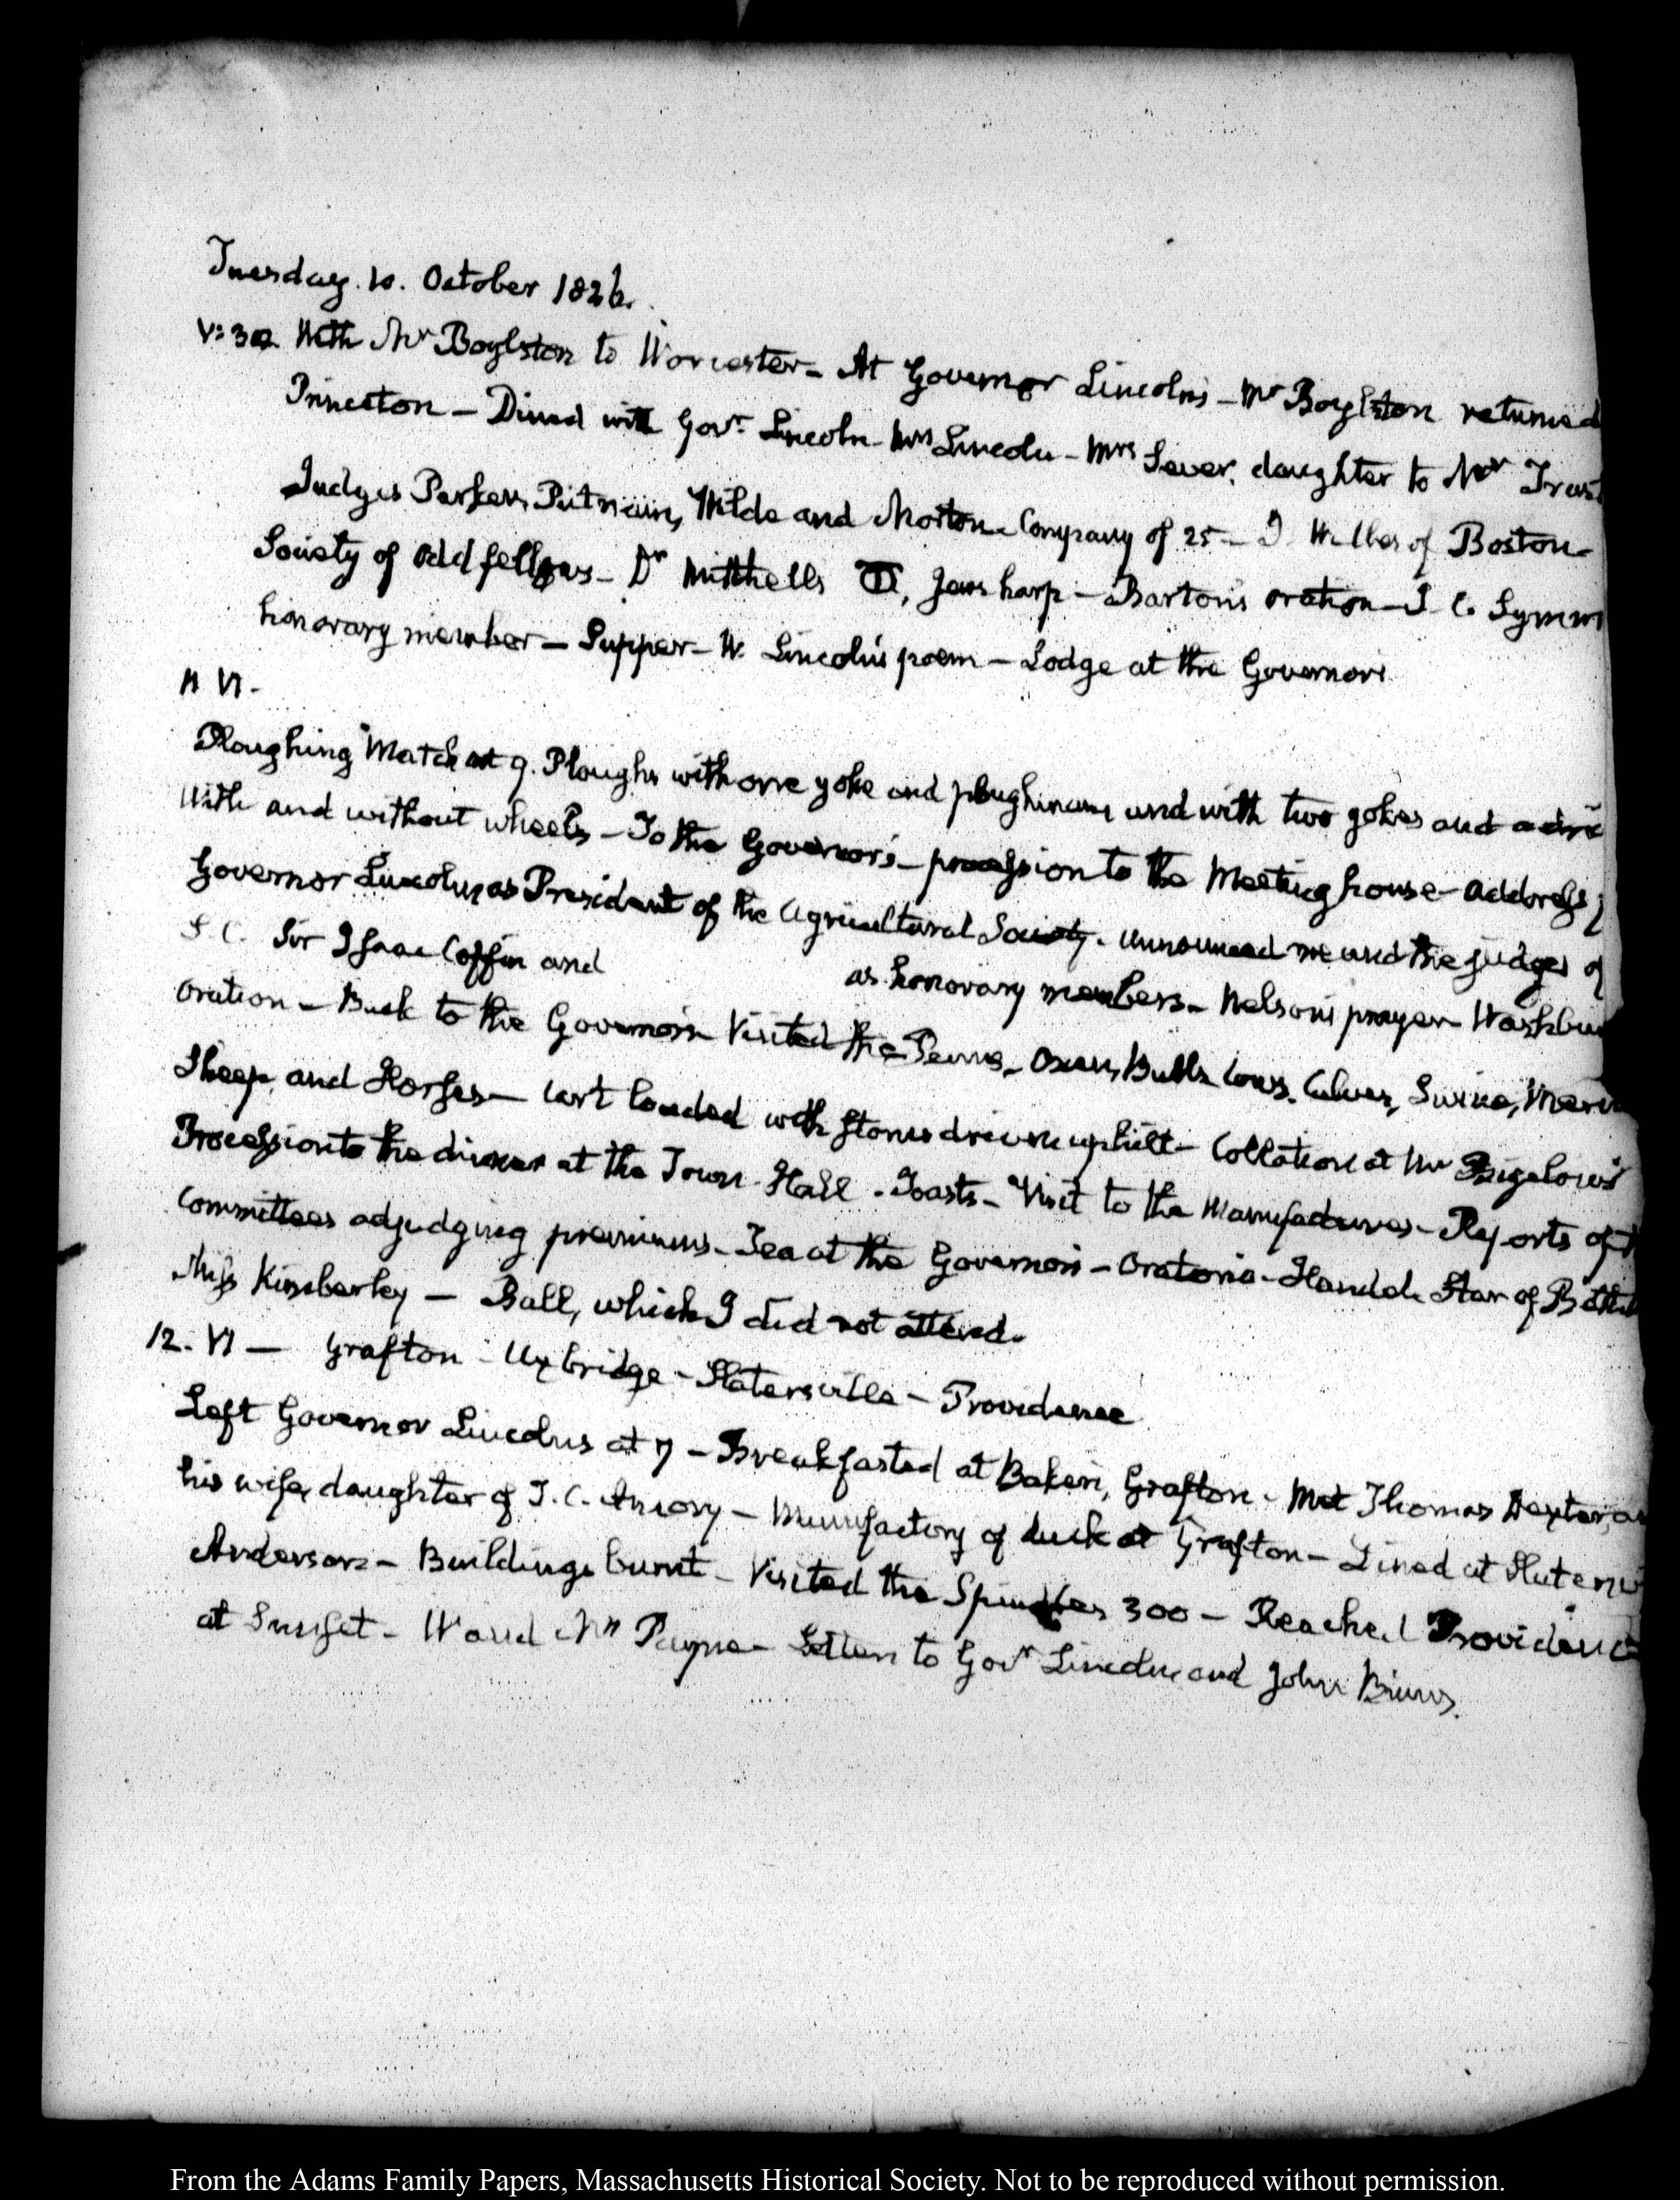 Tuesday. 10. October 1826.
V: 30. With Mr Boylston to Worcester – At Governor Lincoln's – Mr Boylston returned
Princeton – Dined with Govr. Lincoln – Mrs Lincoln – Mrs Sever, daughter to Mr
Judges Parker, Putnam, Wilde and Morton – Company of 25 – of Boston –
Society of odd fellows – Dr Mitchells Jews harp – Barton's oration – J. C.
honorary member – Supper – W. Lincoln's poem – Lodge at the Governors
11 VI.
Ploughing Match at 9. Ploughs with one yoke and ploughman, and with two yokes and
With and without wheels – To the Governor's – procession to the Meeting house – address
Governor Lincoln, as President of the Agricultural Society. announced me and the judges of
S. C. Sir Isaac Coffin and as honorary members – Nelson's prayer –
Oration – Back to the Governors – Visited the Penns – Oxen, Bulls, Cows, Calves, Swine,
Sheep, and Horses – Cart loaded with stones driven uphill – Collation at Mr Bigelow's
Procession to the dinner at the Town-Hall – Toasts – Visit to the Manufactures – Reports of
Committees adjudging premiums – Tea at the Governor's – Oratorio – Handel. Star of
Miss Kimberley – Ball, which I did not attend.
12. VI – Grafton – Uxbridge – Slatersville – Providence
Left Governor Lincolns at 7 – Breakfasted at Bakers, Grafton – Met Thomas Dexter,
his wife, daughter of J. C. Amory – Manufactory of duck at Grafton – Dined at
Anderson – Buildings burnt – Visited the Spindles 300 – Reached Providence
at Sunset – W and Mrs Payne – Letters to Govr Lincoln and John Binns.
From the Adams Family Papers, Massachusetts Historical Society. Not to be reproduced without permission.